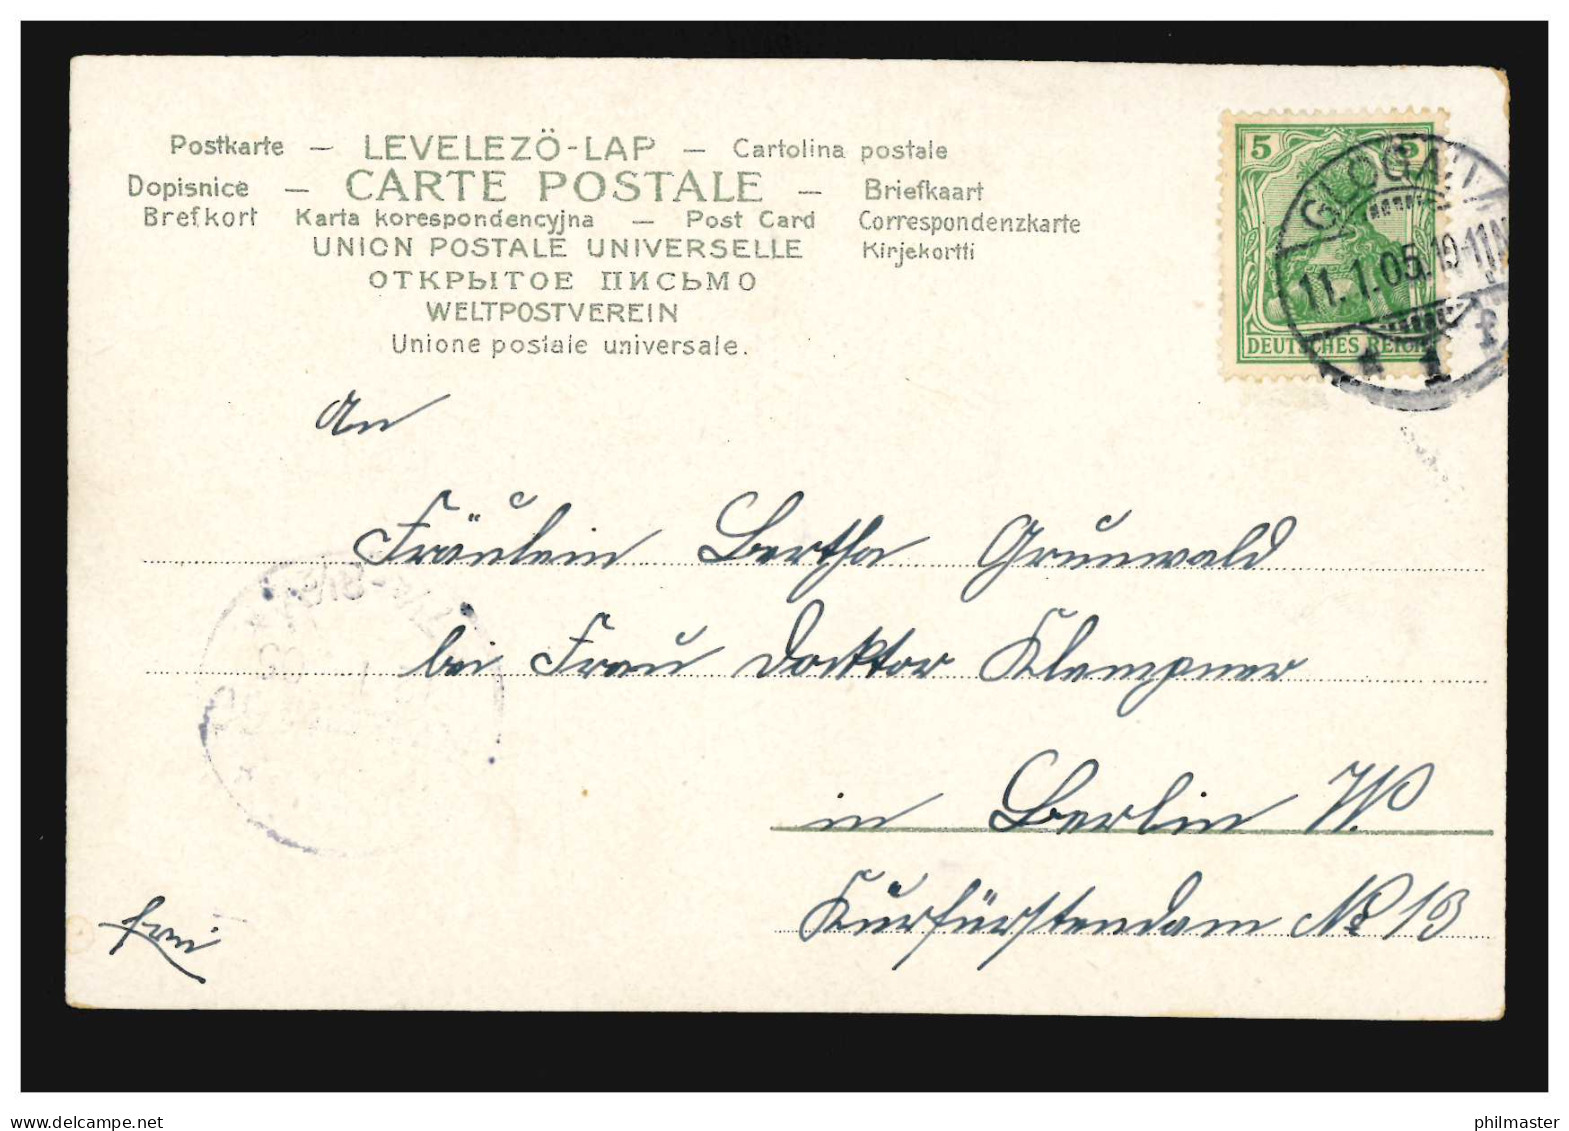 Postkarte – LEVELEZÖ-LAP – Cartolina postale
Dopisnice – CARTE POSTALE – Briefkaart
Brefkort Karta korespondencyjna – Post Card Correspondenzkarte
UNION POSTALE UNIVERSELLE Kirjekortti
ОТКРЫТОЕ ПИСЬМО
WELTPOSTVEREIN
Unione postale universale.
5 5
DEUTSCHES REICH
GLOGAU
11.1.05. 10-11N
1
An
Fräulein Bertha Grunwald
bei Frau Doktor Klempner
in Berlin W.
Kurfürstendam No 13
frei
delcampe.net
philmaster